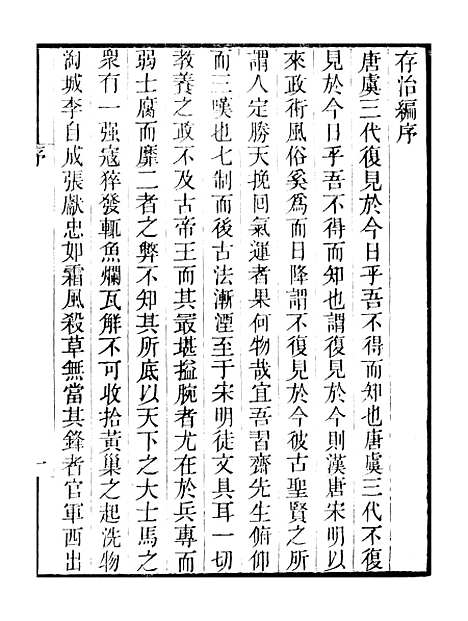 存治編序
唐虞三代復見於今日乎吾不得而知也唐虞三代不復
見於今日乎吾不得而知也謂復見於今則漢唐宋明以
來政術風俗奚為而日降謂不復見於今彼古聖賢之所
謂人定勝天挽回氣運者果何物哉宜吾習齋先生俯仰
而三嘆也七制而後古法漸湮至于宋明徒文具耳一切
教養之政不及古帝王而其最堪搤腕者尤在於兵專而
弱士腐而靡二者之弊不知其所底以天下之大士馬之
衆有一强寇猝發輒魚爛瓦解不可收拾黃巢之起洗物
淘城李自成張獻忠如霜風殺草無當其鋒者官軍西出
序
一